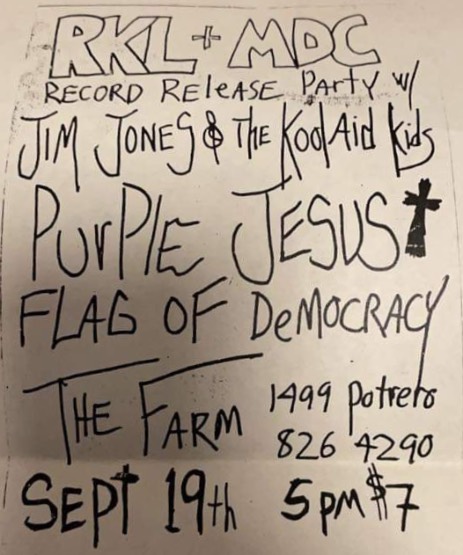 RKL + MDC
RECORD RELEASE PARTY w/
JIM JONES & THE KOOL AID KIDS
PURPLE JESUS
FLAG OF DEMOCRACY
THE FARM 1499 Potrero
826 4290
SEPT 19th 5pm $7